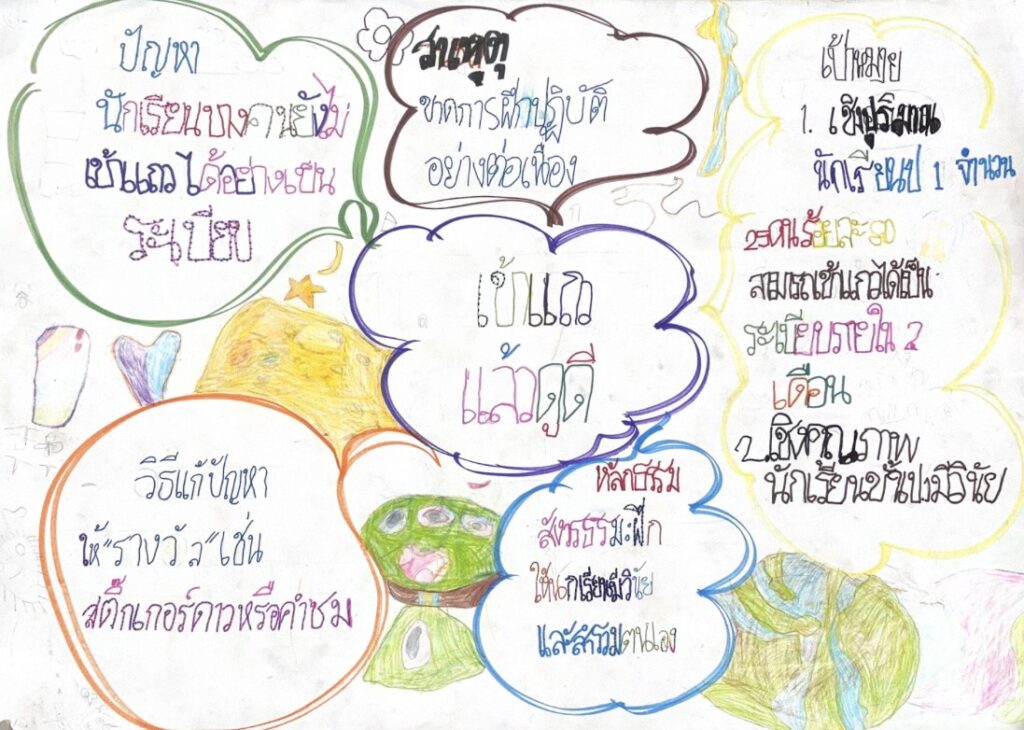 ปัญหา
นักเรียนบางคนยังไม่
เข้าแถวได้อย่างเป็น
ระเบียบ
สาเหตุ
ขาดการฝึกปฏิบัติ
อย่างต่อเนื่อง
เป้าหมาย
1. เชิงปริมาณ
นักเรียนป 1 จำนวน
25คนร้อยละ80
สามารถเข้าแถวได้เป็น
ระเบียบภายใน 2
เดือน
2. เชิงคุณภาพ
นักเรียนชั้นป1มีวินัย
เข้าแถว
แล้วดูดี
วิธีแก้ปัญหา
ให้"รางวัล"เช่น
สติ๊กเกอร์ดาวหรือคำชม
หลักธรรม
สังวรธรรมะฝึก
ให้นักเรียนมีวินัย
และสำรวมตนเอง